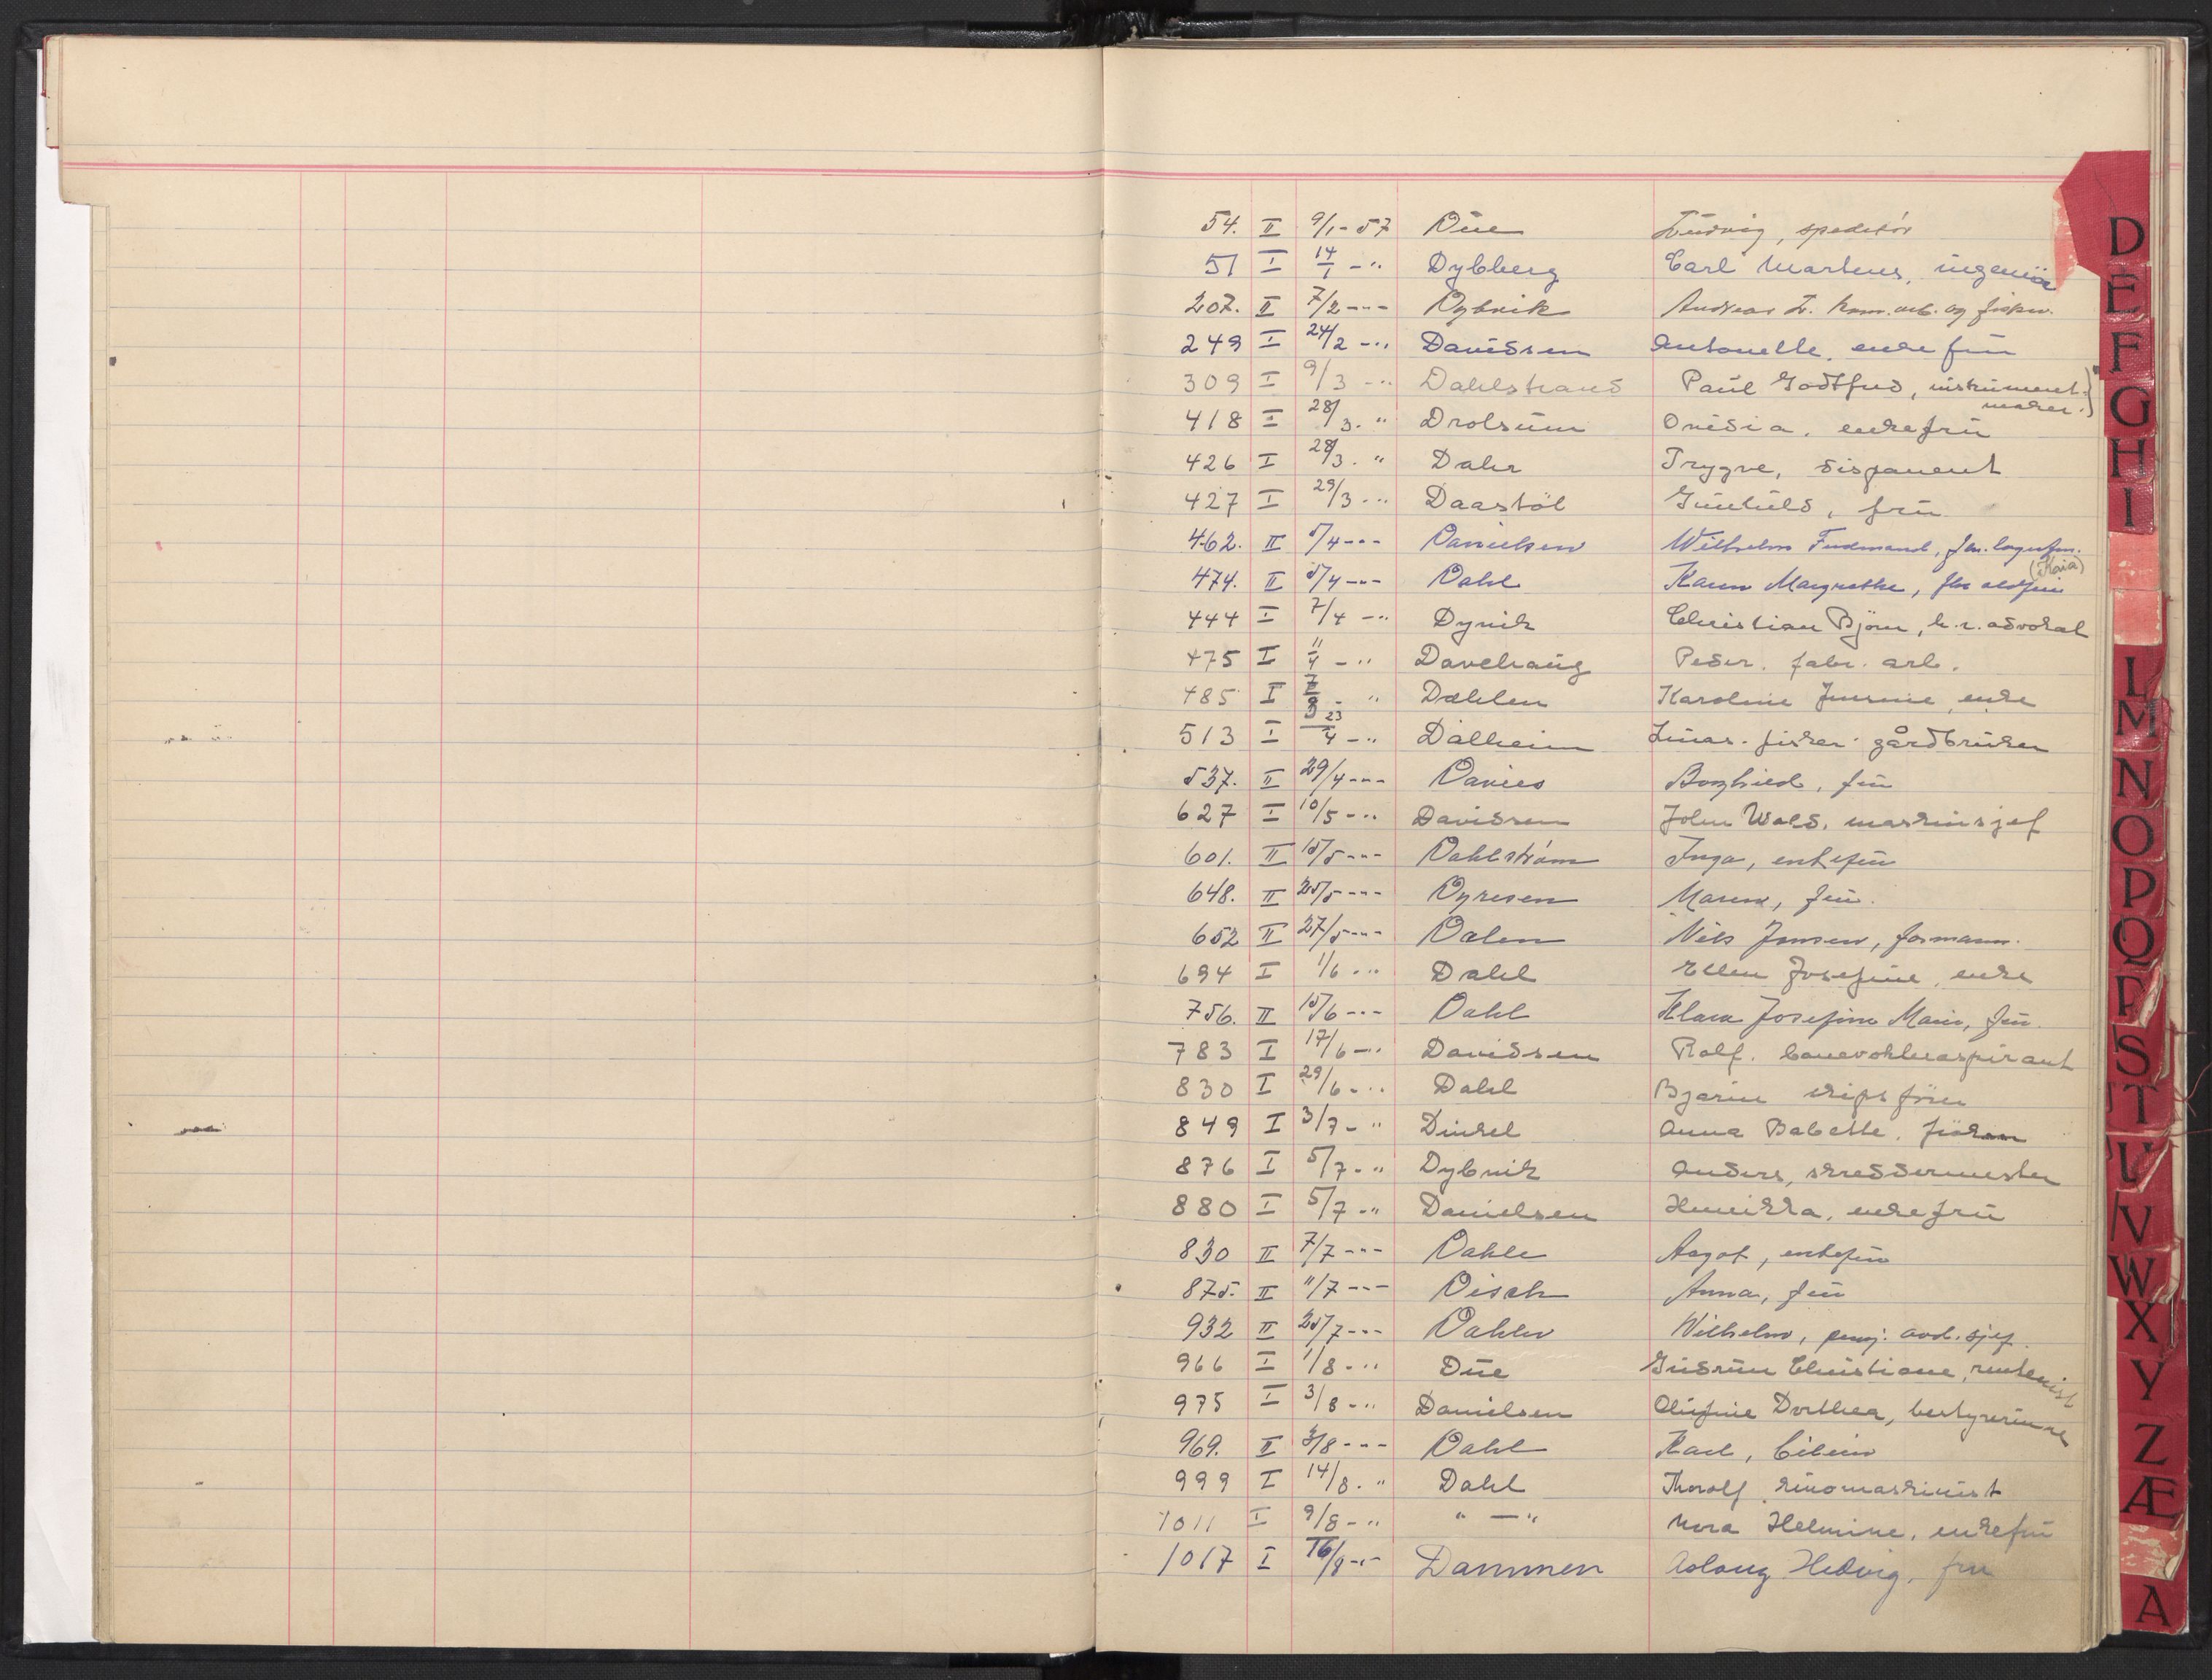 54. II 9/1-57 Due Ludvig, speditör
51 I 14/1 -" Dybberg Carl Martens, ingeniör
207. II 7/2 -"- Dybvik Andreas L. komm.arb. og fisker.
249 I 24/2 -" Davidsen Antonette, enkefru
309 I 9/3 -" Dahlstrand Paul Godtfred, instrument-
maker.
418 I 28/3. " Drolsum Onisia, enkefrü
426 I 28/3. " Dahr Trygve, disponent
427 I 29/3 -" Daastöl Gunhild, frü
462. II 5/4 -"- Danielsen Wilhelm Ferdinand, fhv. lagerfm.
474. II 5/4 -"- Dahl Karen Margrethe, (Kaia)
444 I 7/4 -" Dyvik Christian Bjørn, h.r. advokat
475 I 11/4 -" Davehaug Peder. fabr. arb.
485 I Dæhlen Karoline enke
513 I 23/4 -" Dalheim fisker gårdbruker
537. II 29/4 -"- Danies Borghild, frü
627 I 10/5 -" Davidsen John Wald, maskinsjef
601. II 15/5 -"- Dahlström Inga, enkefrü
648. II 25/5 -"- Dyresen Maren, frü.
652 II 27/5 -"- Dalen Nils Jensen, formann.
694 I 1/6 -" Dahl Ellen Josefine, enke
756. II 15/6 -"- Dahl Klara Josefine Marie, frü.
783 I 17/6 -" Davidsen Rolf. banevokteraspirant
830 I 29/6 -" Dahl Bjarne skipsfører
849 I 3/7 - " Dinkel Anna Babette.
876 I 5/7 -" Dybvik Anders, skreddermester
880 I 5/7 -" Danielsen Henrikka, enkefrü
830 II 7/7 -"- Dahle Aagot, enkefrü
875. II 11/7 -"- Disch Anna, frü
932 II 25/7 -"- Dahler Wilhelm, pensj. avd. sjef.
966 I 1/8 -" Düe Gudrün Christiane, rentenist
975 I 3/8 -" Danielsen Olufine Dorthea, bestyrerinne
969. II 3/8 -"- Dahl Karl,
999 I 14/8. " Dahl Thorolf kinomaskinist
1011 I 9/8 -" " — " Nora Helmine, enkefrü
1017 I 16/8 -"- Dammen Aslaug Hedvig, fru
D
E
F
G
H
I
L
M
N
O
P
Q
R
S
T
U
V
W
X
Y
Z
Æ
A